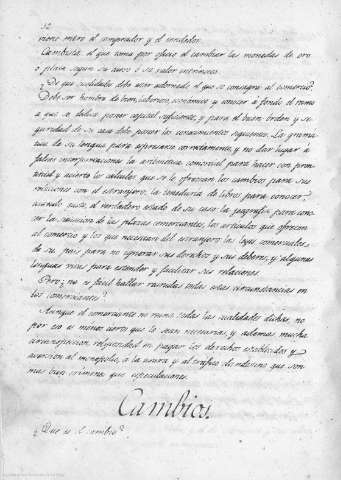 viene entre el comprador y el vendedor.
Cambista el que toma por oficio el cambiar las monedas de oro
o plata segun su curso o su valor intrinseco.
¿De que qualidades debe estar adornado el que se consagra al comercio?
Debe ser hombre de bien, laborioso, economico y conocer a fondo el ramo
a que se dedica poner capital suficiente, y para el buen orden y se-
guridad de su casa debe poseer los conocimientos siguientes. La grama-
tica de su lengua para expresarse correctamente, y no dar lugar á
falsas interpretaciones la aritmetica comercial para hacer con pron-
titud y acierto los calculos que se le ofrezcan los cambios para sus
relaciones con el extrangero, la teneduria de libros para conocer,
quando guste, el verdadero estado de su casa la geografia para cono-
cer la situacion de las plazas comerciantes, los articulos que ofrecen
al comercio y los que necesitan del extrangero las leyes comerciales
de su pais para no ignorar sus derechos y sus deberes, y algunas
lenguas vivas para extender y facilitar sus relaciones.
Pero ¿no es facil hallar reunidas todas estas circunstancias en
los comerciantes?
Aunque el comerciante no reuna todas las qualidades dichas, no
por eso es menos cierto que le sean necesarias, y ademas mucha
circunspeccion, religiosidad en pagar los derechos establecidos y
aversion al monopolio, á la usura y al trafico de negros que son
mas bien crimenes que especulaciones.
Cambios.
¿Que es el cambio?